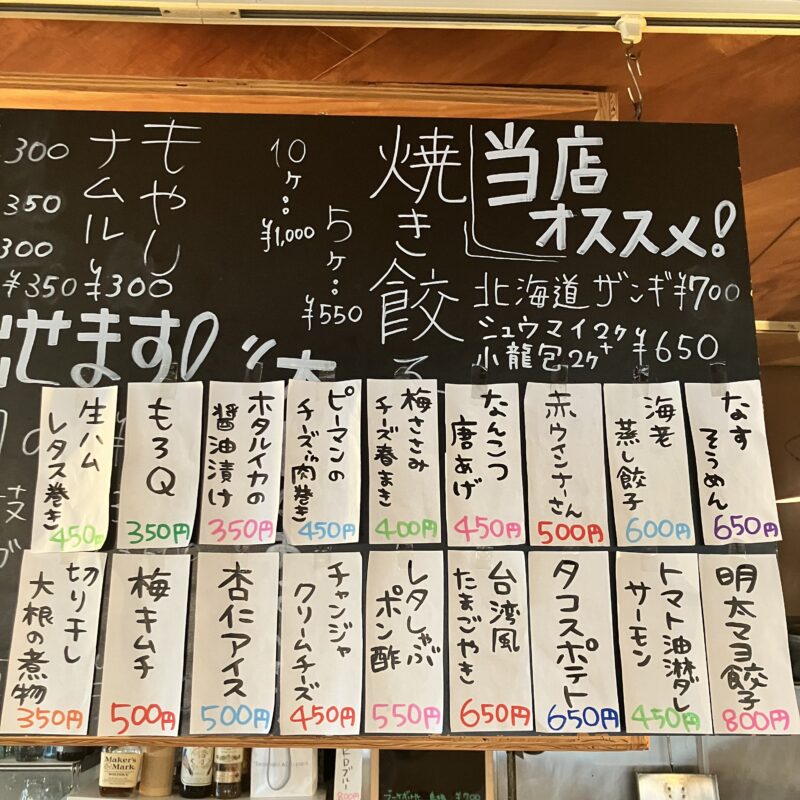 当店
オススメ!
北海道ザンギ¥700
シュウマイ2ケ+
小龍包2ケ
¥650
焼き餃子
5ケ:
¥550
10ケ:
¥1,000
もやし
ナムル
¥300
300
350
300
¥350
せます!
なす
そうめん
650円
海老
蒸し餃子
600円
赤ウインナーさん
500円
なんこつ
唐あげ
450円
梅ささみ
チーズ春まき
400円
ピーマンの
チーズin肉巻き
450円
ホタルイカの
醤油漬け
350円
もろQ
350円
生ハム
レタス巻き
450円
明太マヨ餃子
800円
トマト油淋ダレ
サーモン
450円
タコスポテト
650円
台湾風
たまごやき
650円
レタしゃぶ
ポン酢
550円
チャンジャ
クリームチーズ
450円
杏仁アイス
500円
梅キムチ
500円
切り干し
大根の煮物
350円
Maker's
Mark
800円
¥700